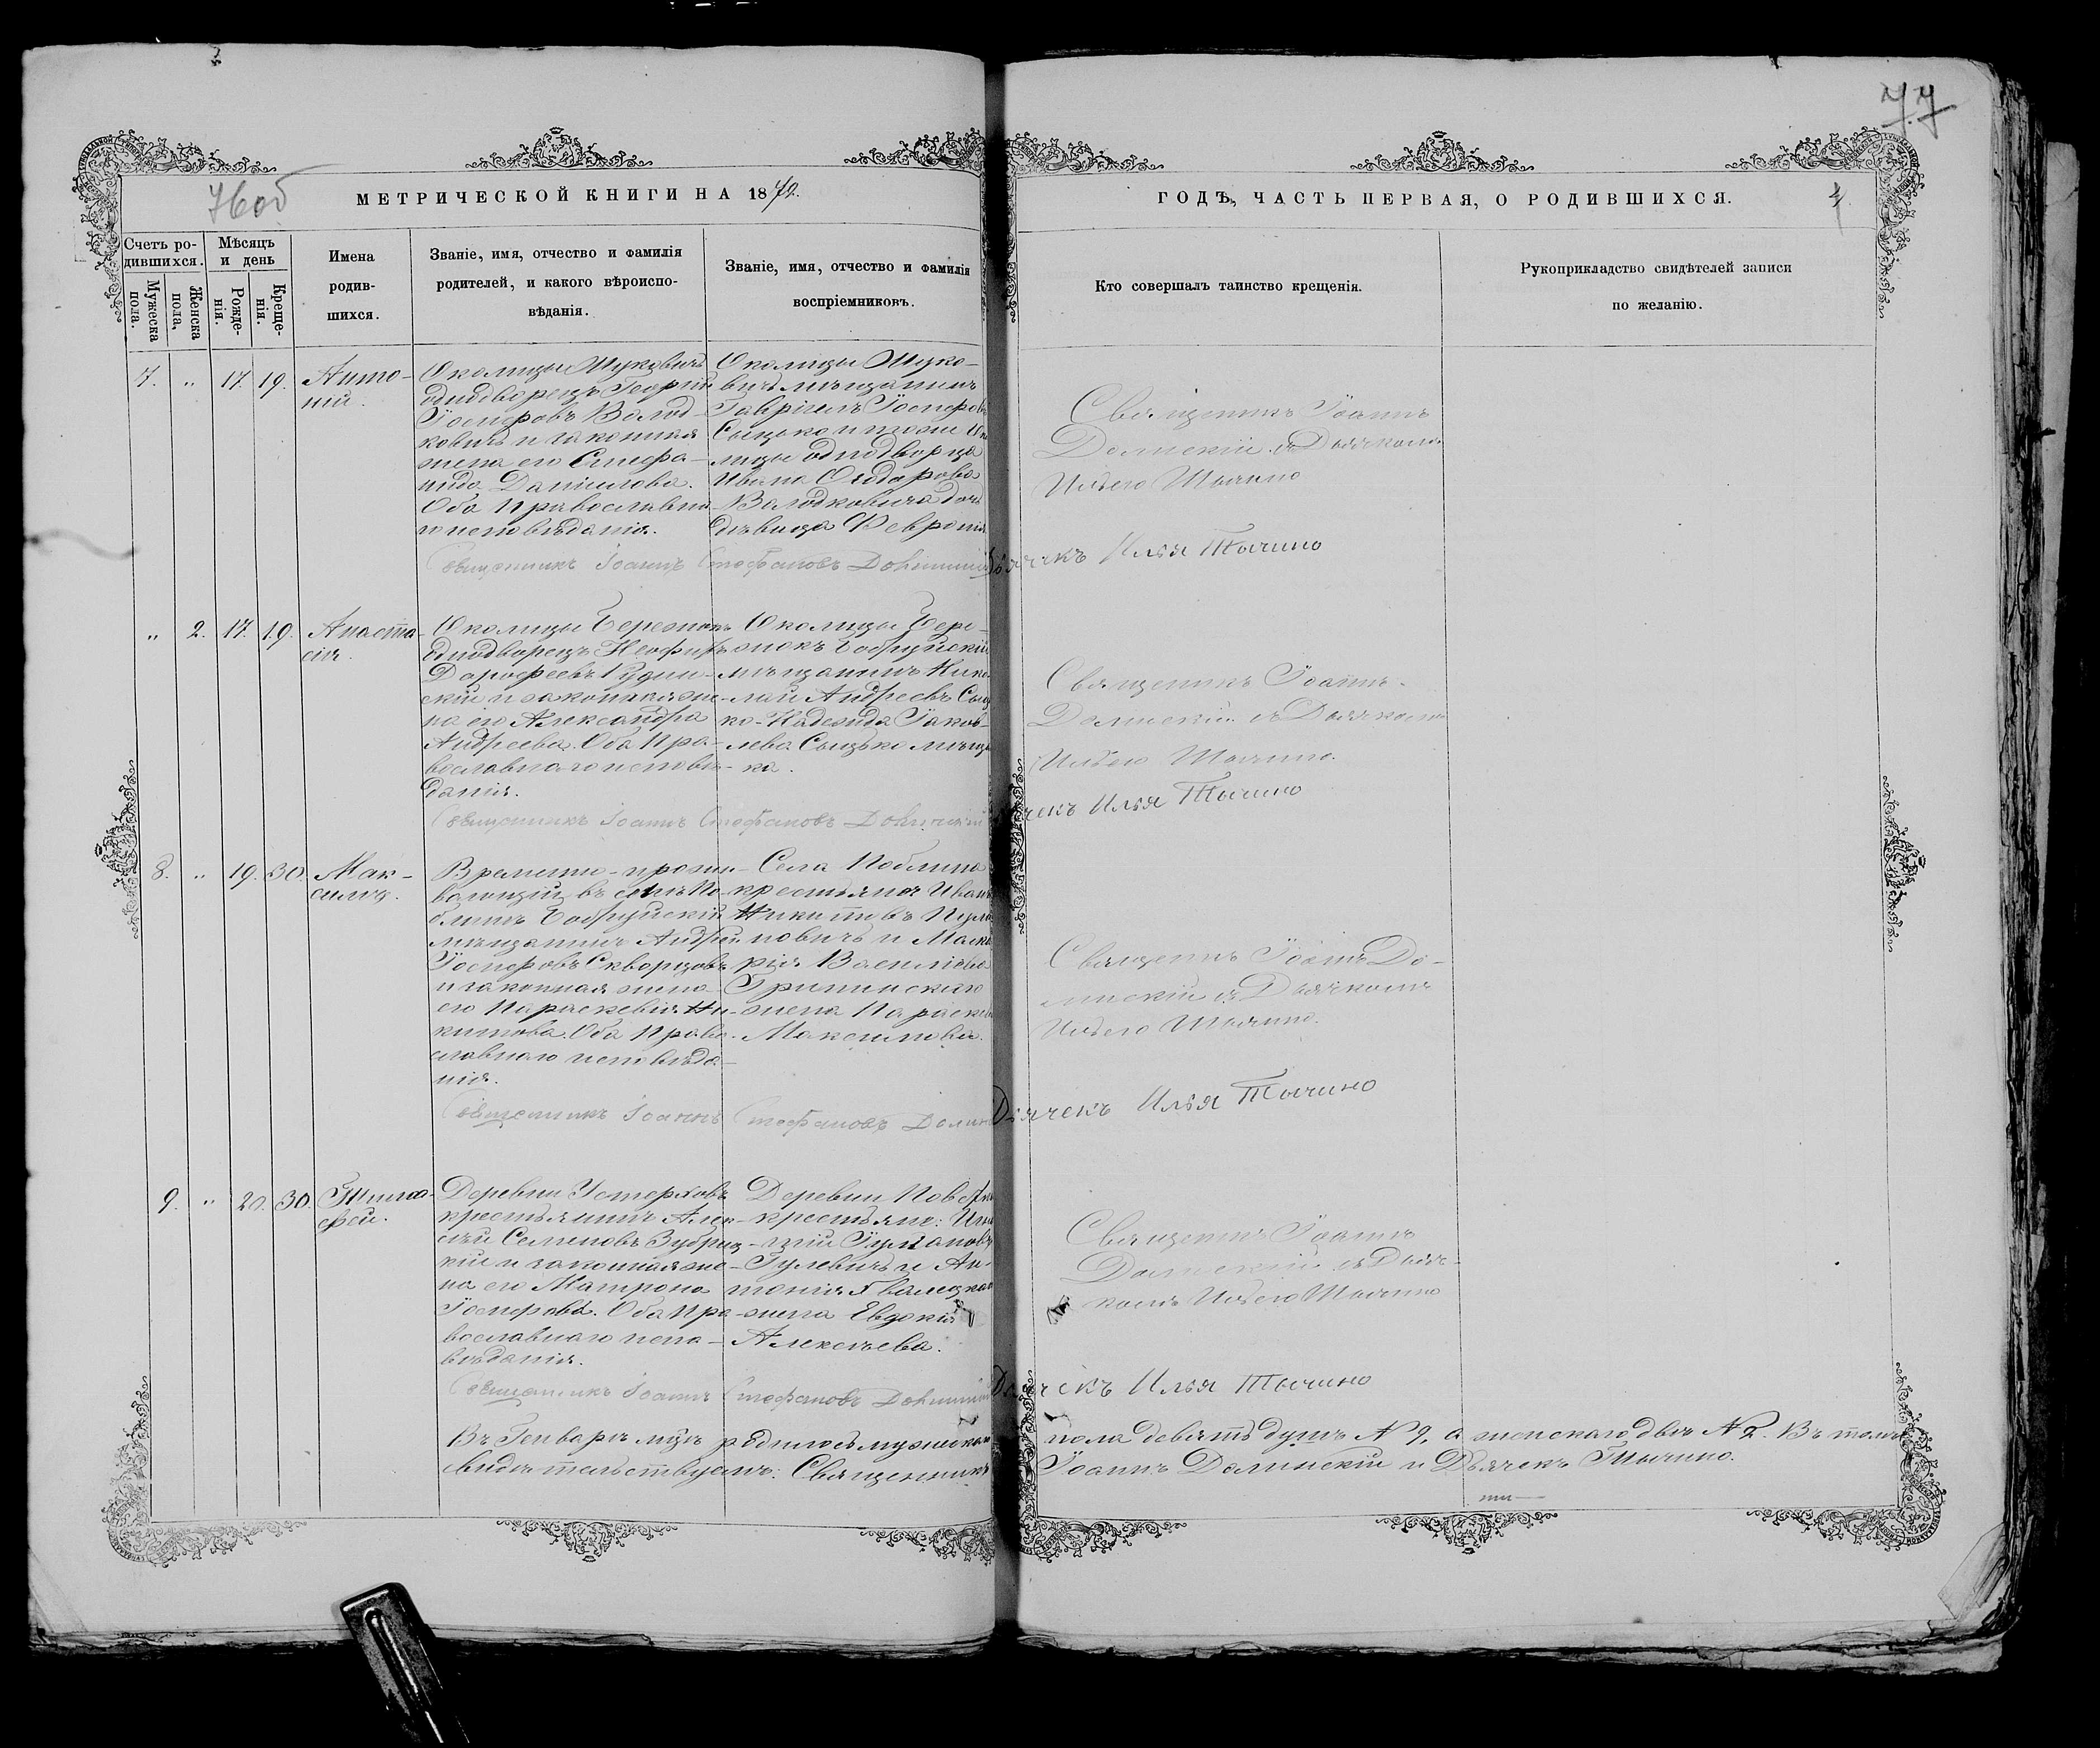 77
76об
МЕТРИЧЕСКОЙ КНИГИ НА 1872.
ГОДЪ, ЧАСТЬ ПЕРВАЯ, О РОДИВШИХСЯ.
4.
Счетъ ро-
дившихся.
Мужеска
пола.
Женска
пола,
Мѣсяцъ
и день
Рожде-
нія.
Креще-
нія.
Имена
родив-
шихся.
Званіе, имя, отчество и фамилія
родителей, и какого вѣроиспо-
вѣданія.
Званіе, имя, отчество и фамилія
воспріемниковъ.
Кто совершалъ таинство крещенія.
Рукоприкладство свидѣтелей записи
по желанію.
7. „ 17. 19. Анто-
ній.
Околицы Шуковичъ
однодворецъ Георгій
Іосифовъ Валод-
ковичъ и законная
жена его Стефа-
нида Даніилова.
Оба Православна-
го исповѣданія.
Околицы Шуко-
вичъ мѣщанинъ
Гавріилъ Іосифовъ
Сыцько и тоже Око
лицы однодворца
Ивана Ѳедорова
Валодковича дочь
дѣвица Февронія
Священникъ Іоаннъ
Долинскій съ Дьячкомъ
Ильею Тычино
Священникъ Іоаннъ Стефановъ Долинскій Дьячекъ Илья Тычино
„ 2. 17. 19. Анаста-
сія.
Околицы Бережокъ
однодворецъ
Дорофеевъ Рудин-
скій и законная же-
на его Александра
Андреева. Оба Пра-
вославнаго исповѣ-
данія.
Околицы Бере-
жокъ Бобруйскій
мѣщанинъ Нико
лай Андреевъ Сыц
ко. Надежда Іаков-
лева Сыцько мѣщан
ка.
Священникъ Іоаннъ
Долинскій съ Дьячкомъ
Ильею Тычино.
Священникъ Іоаннъ Стефановъ Долинскій Дьячекъ Илья Тычино
8. „ 19. 30. Мак-
симъ.
Временно-прожи-
вающій въ селѣ По-
блинъ Бобруйскій
мѣщанинъ Андрей
Іосифовъ Скворцовъ
и законная жена
его Параскевія Ни-
китова. Оба Право-
славнаго исповѣда-
нія.
Села Поблина
крестьяне Иванъ
Никитовъ
новичъ и
Василіева
Гришинскаго
жена Параскева
Максимова.
Священникъ Іоаннъ До-
линскій съ Дьячкомъ
Ильею Тычино.
Священникъ Іоаннъ Стефановъ Долинскій Дьячекъ Илья Тычино
9. „ 20. 30. Тимо-
фей.
Деревни Устерховъ
крестьянинъ Алек-
сѣй Семеновъ Зубриц-
кій и законная же-
на его Матрона
Іосифова. Оба Пра-
вославнаго испо-
вѣданія.
Деревни
крестьяне: Игна
тій Іуліановъ
Гулевичъ и Ан-
тонія
жена Евдокія
Алексѣева.
Священникъ Іоаннъ
Долинскій съ Дьяч-
комъ Ильею Тычино
Священникъ Іоаннъ Стефановъ Долинскій Дьячекъ Илья Тычино
Въ Генварѣ мцѣ родилось мужескаго пола девять душъ № 9, а женскаго двѣ № 2. Въ томъ
свидѣтельствуемъ: Священникъ Іоаннъ Долинскій и Дьячекъ Тычино.